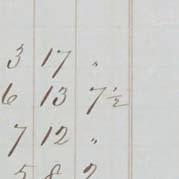 3 17 "
6 13 7½
7 12 "
5 8 2